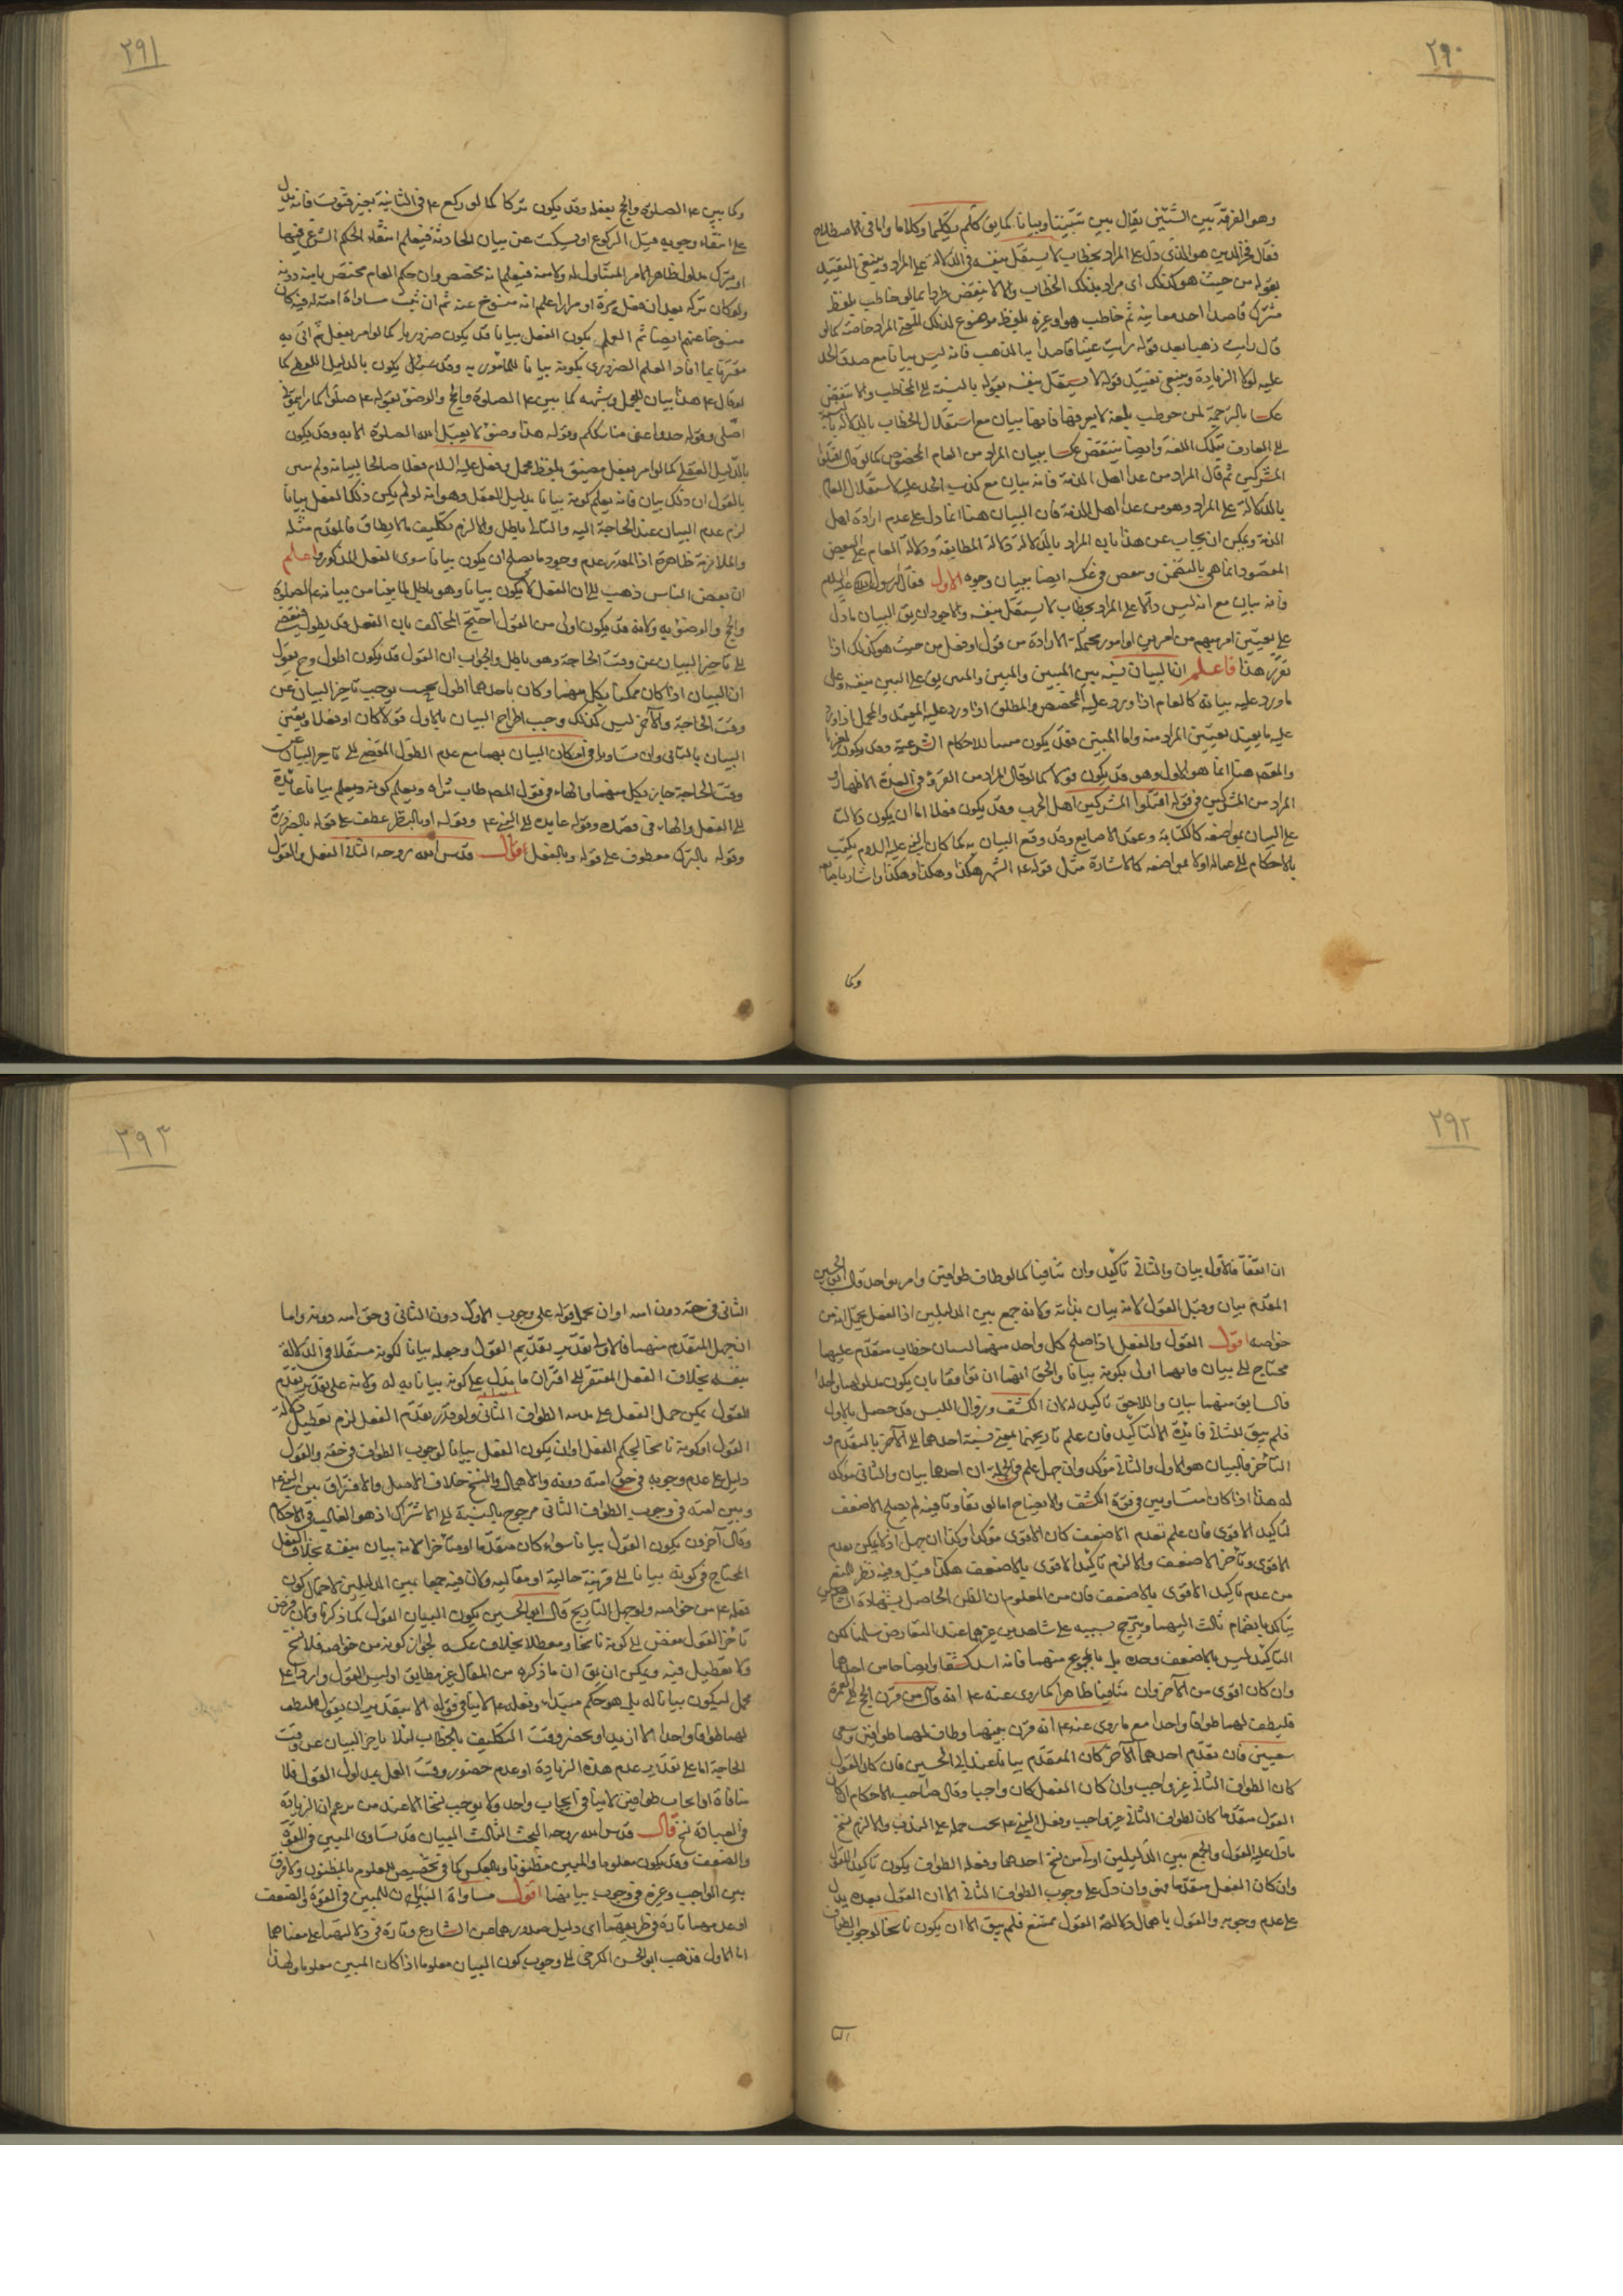 ٢٩٠
وهو الفرقة بين الشيئين يقال بين تبيينا وبيانا كما يق كلم تكليما وكلاما واما في الاصطلاح
فقال فخر الدين هو الذى دل على المراد بخطاب لا يستقل بنفسه في الدلالة على المراد وينبغى التقييد
بقوله من حيث هو كذلك اى مراد بذلك الخطاب والا لا ينتقض طردا بما لو خاطب بلفظ
مشترك قاصدا احد معانيه ثم خاطب هو او غيره بلفظ موضوع لذلك المعنى المراد خاصة كما لو
قال رايت ذهبا بعد قوله رايت عينا قاصدا بها الذهب فانه ليس بيانا مع صدق الحد
عليه لولا الزيادة وينبغى تقييد قوله لا يستقل بنفسه بقوله بالنسبة الى المخاطب والا ينتقض
عكسا بالترجمة لمن خوطب بلغة لا يعرفها فانها بيان مع استقلال الخطاب بالدلالة بالنسبة
الى العارف بتلك اللغة وايضا ينتقض عكسا ببيان المراد من العام المخصوص كما لو قال اقتلوا
المشركين ثم قال المراد من عدا اهل الذمة فانه بيان مع كذب الحد عليه لاستقلال العام
بالدلالة على المراد وهو من عدا اهل الذمة فان البيان هنا انما دل على عدم ارادة اهل
الذمة ويمكن ان يجاب عن هذا بان المراد بالدلالة دلالة المطابقة ودلالة العام على البعض
المقصود انما هى بالتضمن وينتقض في عكسه ايضا ببيان وجوه الاول فقال الرسول عليه السلام
فانه بيان مع انه ليس دالا على المراد بخطاب لا يستقل بنفسه والاجود ان يق البيان ما دل
على تعيين امر مبهم من امرين او امور محتملة الارادة من قول او فعل من حيث هو كذلك اذا
تقرر هذا فاعلم ان البيان نسبة بين المبيِّن والمبيَّن والمبين يق على المبين بنفسه وعلى
ما ورد عليه بيانه كالعام اذا ورد عليه المخصص والمطلق اذا ورد عليه المقيد والمجمل اذا ورد
عليه ما يفيد تعيين المراد منه واما المبين فقد يكون مبينا للاحكام الشرعية وقد يكون لغيرها
والمقصود هنا انما هو الاول وهو قد يكون قولا كما لو قال المراد من القرء في العدة الاطهار و
المراد من المشركين في قوله اقتلوا المشركين اهل الحرب وقد يكون فعلا اما ان يكون دلالته
على البيان بمواضعة كالكتابة وعقد الاصابع وقد وقع البيان به كما كان النبى عليه السلام يكتب
بالاحكام الى عماله او لا بمواضعة كالاشارة مثل قوله ع الشهر هكذا وهكذا وهكذا واشار باصابعه
وكما
٢٩١
وكما بين ع الصلوة والحج بفعله وقد يكون تركا كما لو ركع ع في الثانية بغير قنوت فانه يدل
على انتفاء وجوبه قبل الركوع او يسكت عن بيان الحادثة فيعلم انتفاء الحكم الشرعى فيها
او يترك مدلول ظاهر الامر المتناول له ولامته فيعلم انه مخصص وان حكم العام مختص بامته دونه
ولو كان تركه بعد ان فعل مرة او مرارا علم انه منسوخ عنه ثم ان ثبت مساواة امته له فيه كان
منسوخا عنهم ايضا ثم العلم بكون الفعل بيانا قد يكون ضروريا كما لو امر بفعل ثم اتى به
مقترنا بما افاد العلم الضرورى بكونه بيانا للمأمور به وقد يكون بالدليل اللفظى كما
لو قال ع هذا بيان المجمل وشبهه كما بين ع الصلوة والحج والوضوء بقوله ع صلوا كما رايتمونى
اصلى وقوله خذوا عنى مناسككم وقوله هذا وضوء لا يقبل الله الصلوة الا به وقد يكون
بالدليل العقلى كما لو امر بفعل مضيق بلفظ مجمل وفعل عليه السلام فعلا صالحا لبيانه ولم يبين
بالقول ان ذلك بيان فانه يعلم كونه بيانا بدليل العقل وهو انه لو لم يكن ذلك الفعل بيانا
لزم عدم البيان عند الحاجة اليه والتالى باطل والا لزم تكليف ما لا يطاق فالمقدم مثله
والملازمة ظاهرة اذ المقدر عدم وجود ما يصلح ان يكون بيانا سوى الفعل المذكور واعلم
ان بعض الناس ذهب الى ان الفعل لا يكون بيانا وهو باطل لما بينا من بيانه ع الصلوة
والحج والوضوء به ولانه قد يكون اولى من القول احتج المخالف بان الفعل قد يطول فيفضى
الى تاخير البيان عن وقت الحاجة وهو باطل والجواب ان القول قد يكون اطول وح يقول
ان البيان اذا كان ممكنا بكل منهما وكان باحدهما اطول بحيث يوجب تاخير البيان عن
وقت الحاجة والآخر ليس كذلك وجب اطراح البيان بالاول قولا كان او فعلا وتعين
البيان بالثانى وان تساويا في امكان البيان بهما مع عدم الطول المفضى الى تاخير البيان عن
وقت الحاجة جاز بكل منهما والهاء في قول المصم طاب ثراه ويعلم كونه ويعلم بيانا عائدة
الى الفعل والهاء في قصده وقوله عايدة الى النبى ع وبقوله او بالنظر عطف على قوله بالضرورة
وقوله بالترك معطوف على قوله وبالفعل قال قدس الله روحه الثالث الفعل والقول
٢٩٢
ان اتفقا فالاول بيان والثانى تأكيد وان تنافيا كما لو طاف طوافين وامر بواحد قال ابو الحسين
المقدم بيان وقيل القول لانه بيان بذاته ولانه جمع بين الدليلين اذ الفعل يحتمل انه من
خواصه اقول القول والفعل اذا صلح كل واحد منهما لبيان خطاب متقدم عليهما
محتاج الى بيان فايهما اولى بكونه بيانا والحق انهما ان توافقا بان يكون مدلولهما واحدا
فالسابق منهما بيان واللاحق تاكيد له لان الكشف وزوال اللبس قد حصل بالاول
فلم يبق للثانى فائدة الا التاكيد فان علم تاريخهما بمعنى نسبة احدهما الى الآخر بالتقدم و
التأخر فالبيان هو الاول والثانى مؤكد وان جهل علم في الجملة ان احدهما بيان والثانى مؤكد
له هذا اذا كان متساويين في قوة الكشف والايضاح اما لو تفاوتا فيه لم يصلح الاضعف
لتاكيد الاقوى فان علم تقدم الاضعف كان الاقوى مؤكدا وكذا ان جهل اذ لا يمكن تقدم
الاقوى وتأخر الاضعف والا لزم تاكيد الاقوى بالاضعف هكذا قيل وفيه نظر للمنع
من عدم تاكيد الاقوى بالاضعف فان من المعلوم ان الظن الحاصل بشهادة الشاهدين
يتأكد بانضمام ثالث اليهما ويترجح بسببه على شاهدين غيرهما عند التعارض سلمنا لكن
التاكيد ليس بالاضعف وحده بل بالمجموع منهما فانه اشد كشفا وايضاحا من احدهما
وان كان اقوى من الآخر وان تنافيا ظاهرا كما روى عنه ع انه قال من قرن الحج الى العمرة
فليطف لهما طوافا واحدا مع ما روى عنه ع انه قرن بينهما وطاف لهما طوافين وسعى
سعيين فان تقدم احدهما الآخر كان المتقدم بيانا عند ابى الحسين فان كان القول
كان الطواف الثانى غير واجب وان كان الفعل كان واجبا وقال صاحب الاحكام ان كان
القول متقدما كان الطواف الثانى غير واجب وفعل النبى ع يجب حمله على الندب والا لزم نسخ
ما دل عليه القول والجمع بين الدليلين اولى من نسخ احدهما وفعله الطواف يكون تأكيدا للقول
وان كان الفعل متقدما فهو وان دل على وجوب الطواف الثانى الا ان القول بعده يدل
على عدم وجوبه والقول باهمال دلالة القول ممتنع فلم يبق الا ان يكون ناسخا لوجوب الطواف
الثا
٢٩٣
الثانى في حقه دون امته او ان يحمل قوله على وجوب الاول دون الثانى في حق امته دونه واما
ان جهل المتقدم منهما فالاولى تقدير تقديم القول وجعله بيانا لكونه مستقلا في الدلالة
بنفسه بخلاف الفعل المفتقر الى اقتران ما يدل على كونه بيانا به له ولانه على تقدير تقدم
القول يمكن حمل الفعل على ندبية الطواف الثانى ولو قدر تقدم الفعل لزم تعطيل دلالة
القول او كونه ناسخا لحكم الفعل او ان يكون الفعل بيانا لوجوب الطواف في حقه والقول
دليل على عدم وجوبه في حق امته دونه والاهمال والنسخ خلاف الاصل والافتراق بين النبى ع
وبين امته في وجوب الطواف الثانى مرجوح بالنسبة الى الاشتراك اذ هو الغالب في الاحكام
وقال آخرون يكون القول بيانا سواء كان متقدما او متأخرا لانه بيان بنفسه بخلاف الفعل
المحتاج في كونه بيانا الى قرينة حالية او مقالية ولان فيه جمعا بين الدليلين لاحتمال كون
فعله ع من خواصه ولو جهل التاريخ قال ابو الحسين يكون البيان القول كما ذكرنا ولان فرض
تأخر القول مفض الى كونه ناسخا ومعطلا بخلاف عكسه لجواز كونه من خواصه فلا نسخ
ولا تعطيل فيه ويمكن ان يق ان ما ذكره من المثال غير مطابق اذ ليس القول واردا على
مجمل ليكون بيانا له بل هو حكم مبتدأ وفعله ع لا ينافى قوله الا بتقدير ان يقول فليطف
لهما طوافا واحدا لا ازيد او بحضر وقت التكليف بالخطاب لئلا يتاخر البيان عن وقت
الحاجة اما على تقدير عدم هذه الزيادة او عدم حضور وقت العمل بمدلول القول فلا
منافاة اذ ايجاب طوافين لا ينافى ايجاب واحد ولا يوجب نسخا الا عند من يزعم ان الزيادة
في العبادة نسخ قال قدس الله روحه البحث الثالث البيان قد يساوى المبين في القوة
والضعف وقد يكون معلوما والمبين مظنونا وبالعكس كما في تخصيص المعلوم بالمظنون ولا فرق
بين الواجب وغيره في وجوب بيانهما اقول مساواة البيان للمبين في القوة والضعف
او عدمهما تارة في طريقهما اى دليل صدورهما من الشارع وتارة في دلالتهما على معناهما
اما الاول فذهب ابو الحسن الكرخى الى وجوب كون البيان معلوما اذا كان المبين معلوما ولهذا